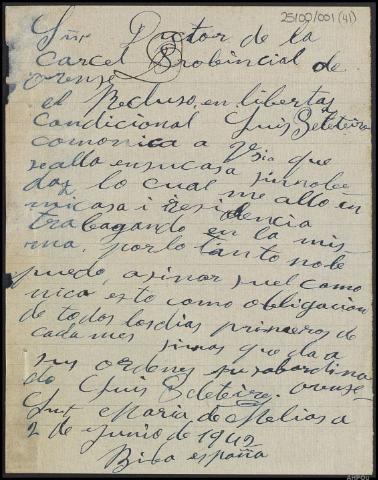 25102/001 (41)
Sñr Dector de la
Carcel Probincial de
orense
el Recluso, en libertad
Condicional Luis Seteteire
comonica a Vsia que
se alla en su casa sinnobe
dad lo cual me allo en
mi casa i Residencia
trabagando en la mis-
ma, por lo tanto nobe
puedo, asinar suel camo
nica esto como obligacion
de todos los dias primeros de
cada mes sinas que da a
sus ordenes su sabordina
do Luis Seteteire. orense-
Snt Maria de Melias a
2 de gunio de 1942
Biba españa
AHPOU